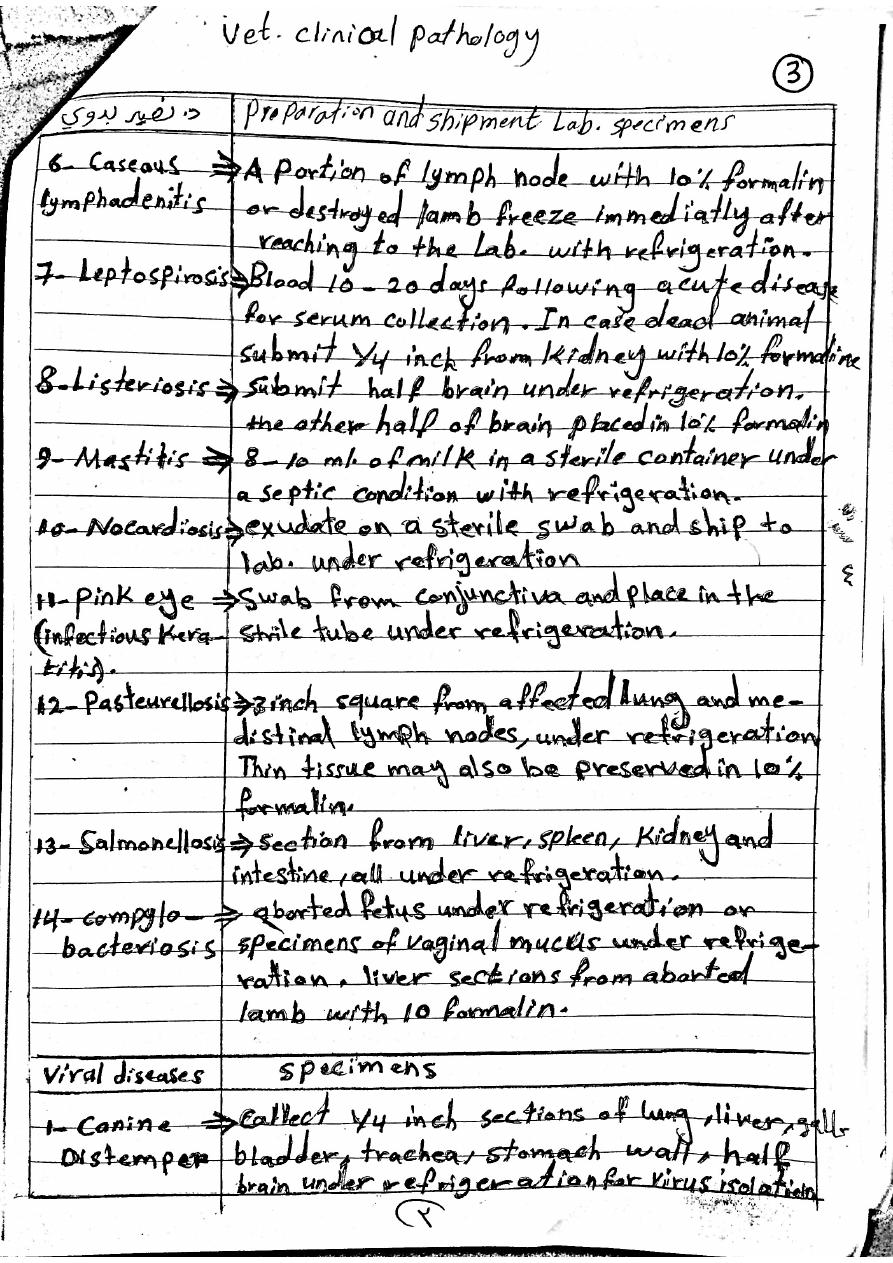 Vet. clinical pathology
3
د. نضير بدوي
Preparation and shipment Lab. specimens
6- Caseous ⇒ A portion of lymph node with 10% formalin
lymphadenitis or destroyed lamb freeze immediatly after
reaching to the lab. with refrigeration.
7- Leptospirosis ⇒ Blood 10-20 days following acute disease
for serum collection. In case dead animal
submit 1/4 inch from kidney with 10% formaline
8- Listeriosis ⇒ submit half brain under refrigeration.
the other half of brain placed in 10% formalin
9- Mastitis ⇒ 8-10 ml. of milk in a sterile container under
a septic condition with refrigeration.
10- Nocardiosis ⇒ exudate on a sterile swab and ship to
lab. under refrigeration
11- Pink eye ⇒ Swab from conjunctiva and place in the
(infectious Kera- strile tube under refrigeration.
titis).
12- Pasteurellosis ⇒ 3 inch square from affected lung and me-
distinal lymph nodes, under refrigeration
Thin tissue may also be preserved in 10%
formalin.
13- Salmonellosis ⇒ Section from liver, spleen, kidney and
intestine, all under refrigeration.
14- compylo- ⇒ aborted fetus under refrigeration or
bacteriosis specimens of vaginal mucus under refrige-
ration. liver sections from aborted
lamb with 10 formalin.
Viral diseases specimens
1- Canine ⇒ Collect 1/4 inch sections of lung, liver, gall
Distemper bladder, trachea, stomach wall, half
brain under refrigeration for virus isolation
٢